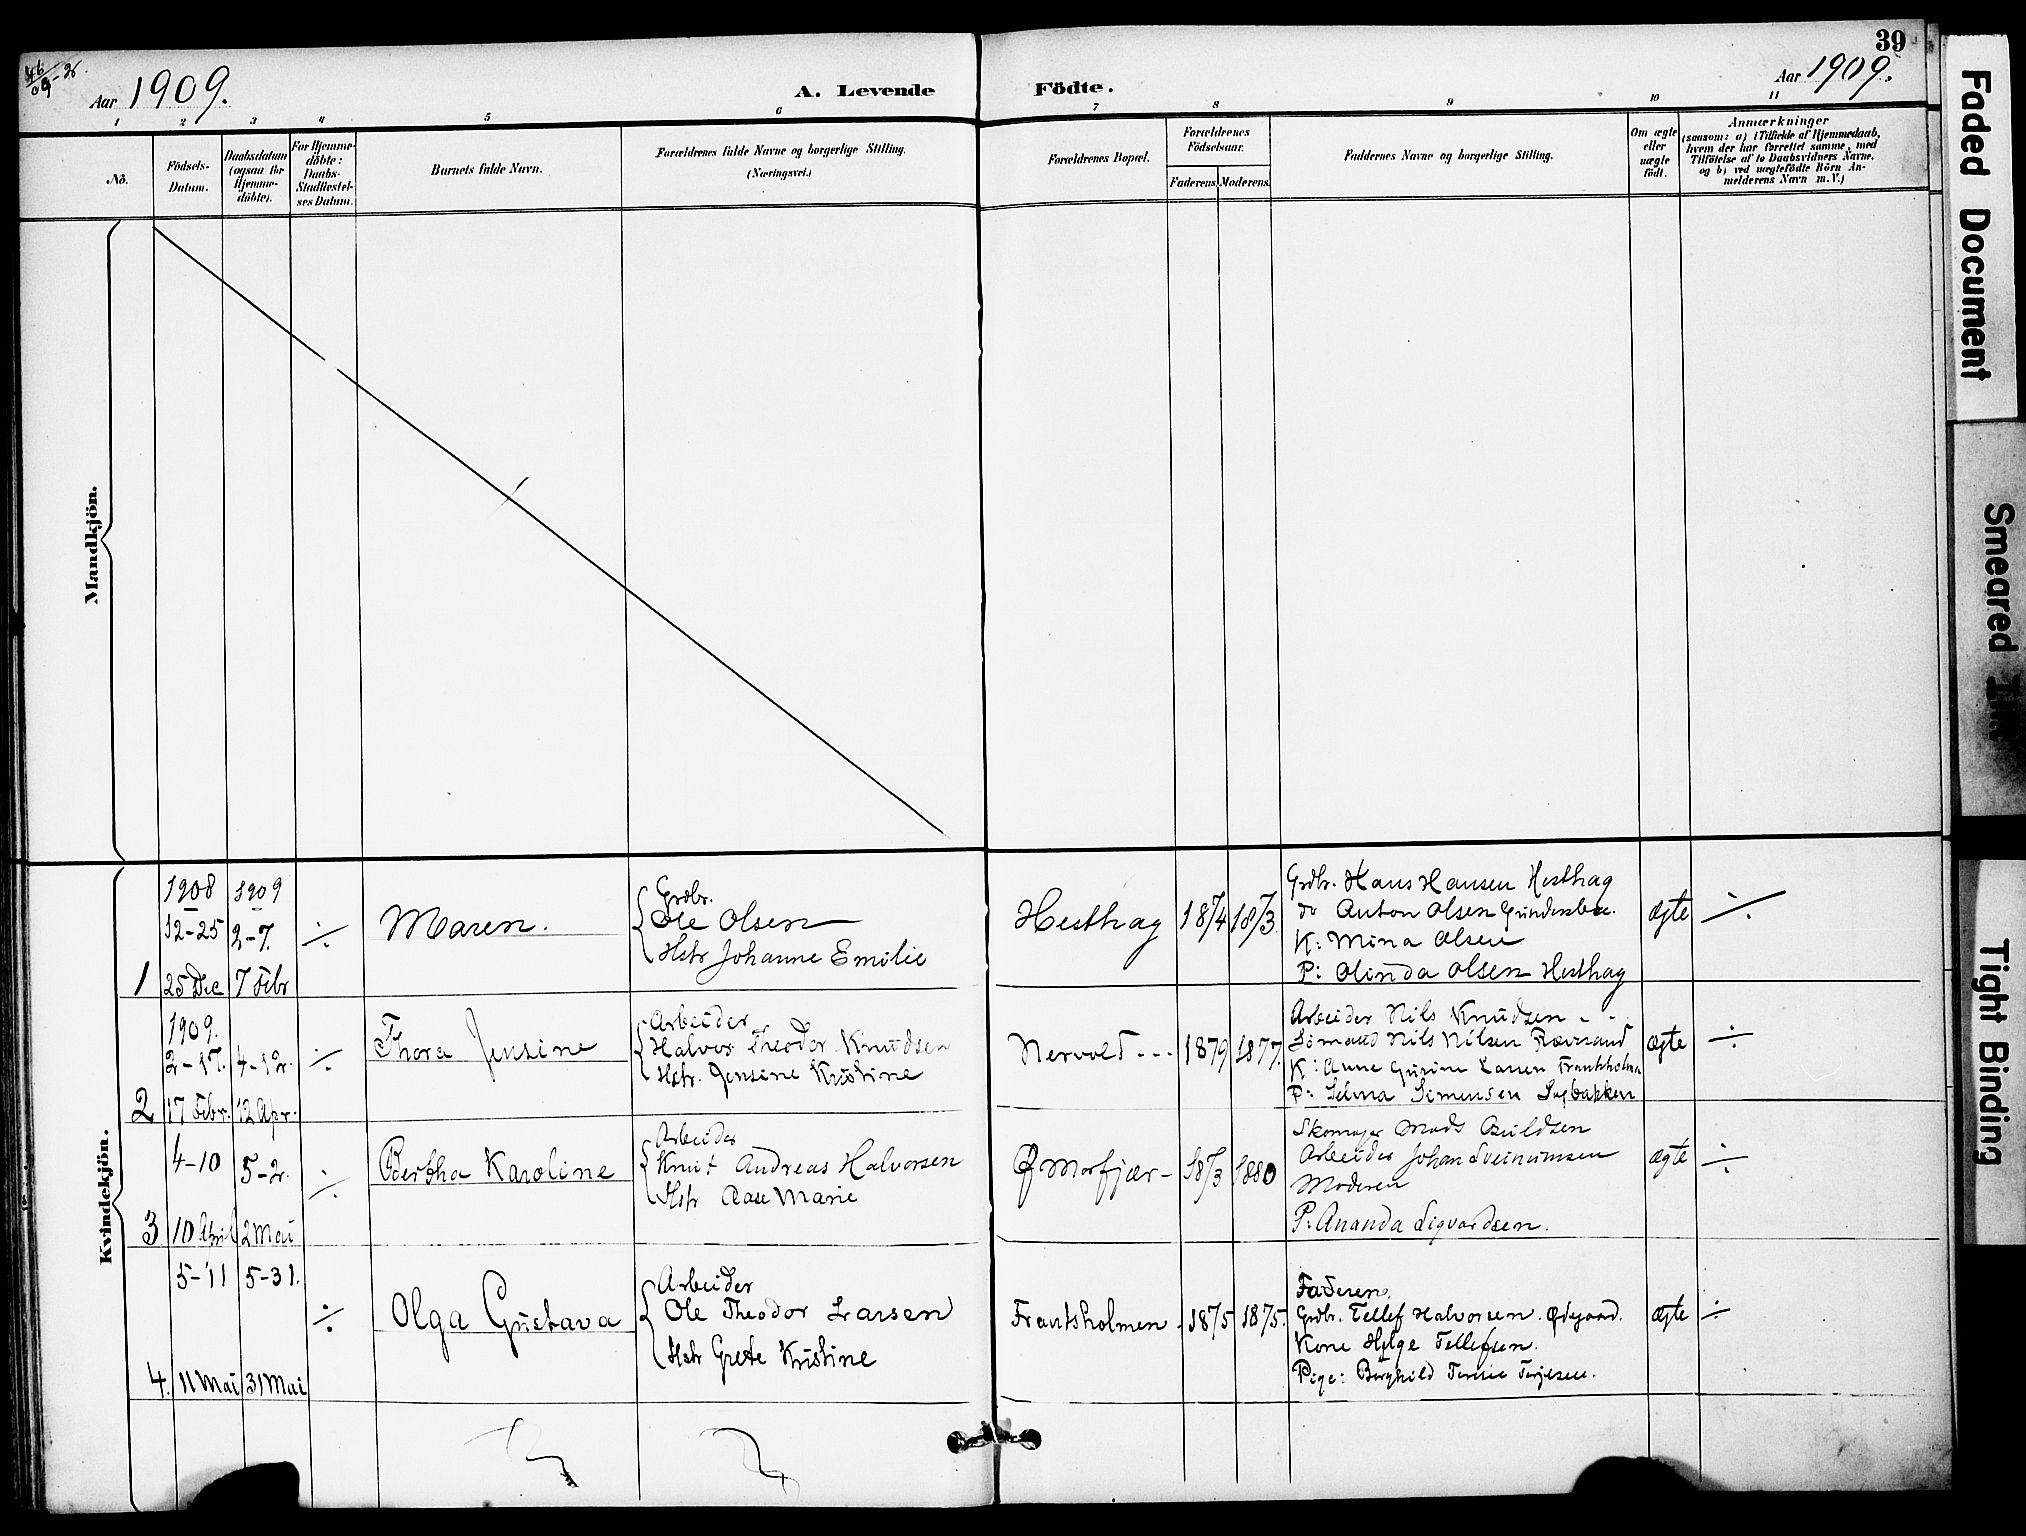 39
Aar 1909.
A. Levende Födte.
Aar 1909.
1 2 3 4 5 6 7 8 9 10 11
No.
Födsels-
Datum.
Daabsdatum
(ogsaa for
Hjemme-
døbte).
For Hjemme-
døbte:
Daabs-
Stadfæstel-
ses Datum.
Barnets fulde Navn.
Forældrenes fulde Navne og borgerlige Stilling.
(Næringsvei.)
Forældrenes Bopæl.
Forældrenes
Fødselsaar.
Faderens. Moderens.
Faddernes Navne og borgerlige Stilling.
Om ægte
eller
uægte
født.
Anmærkninger
(saasom: a) i Tilfælde af Hjemmedaab,
hvem der har forrettet samme, med
Tilføielse af to Daabsvidners Navne,
og b) ved uægtefødte Börn An-
melderens Navn m.V.)
Mandkjön.
Kvindekjön.
1908 1909
12-25 2-7.
1 25 Dec 7 Febr
÷
Maren.
Grdbr.
Ole Olsen
Hstr Johanne Emilie
Hesthag
1874 1873
Grdbr. Hans Hansen Hesthag
do Anton Olsen
K: Mina Olsen
P: Olinda Olsen Hesthag
ægte
÷
1909.
2-17. 4-12.
2 17 Febr. 12 Apr.
÷
Thora Jensine
Arbeider
Halvor Theodor Knudsen
Hstr. Jensine Kristine
Nervold
1879 1877.
Arbeider Nils Knudsen
Sömand Nils Nilsen
K: Anne Gurine Larsen
P: Selma Simensen Sagbakken
ægte
÷
4-10 5-2.
3 10 April 2 Mai
÷
Bertha Karoline
Arbeider
Knut Andreas Halvorsen
Hstr Aase Marie
Ø Morfjær
1873 1880
Skomager Mads
Arbeider Johan
Moderen
P: Ananda Sigvardsen.
ægte
÷
5-11 5-31.
4. 11 Mai 31 Mai
÷
Olga Gustava
Arbeider
Ole Theodor Larsen
Hstr Grete Kristine
Frantsholmen
1875 1875.
Faderen.
Grdbr. Tellef Halvorsen. Ødegaard.
Kone Helge Tellefsen.
Pige: Borghild Terjesen.
ægte
÷
Faded Document
Smeared Ink
Tight Binding